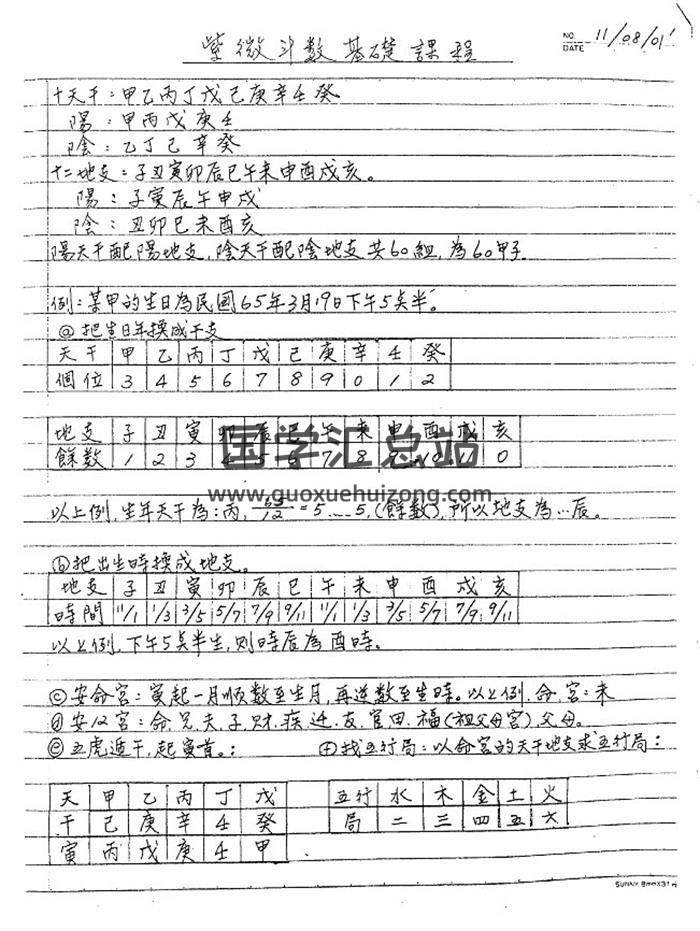 紫微斗数基礎課程
NO.
DATE 11/08/01
十天干：甲乙丙丁戊己庚辛壬癸
陽：甲丙戊庚壬
陰：乙丁己辛癸
十二地支：子丑寅卯辰巳午未申酉戌亥。
陽：子寅辰午申戌
陰：丑卯巳未酉亥
陽天干配陽地支，陰天干配陰地支共60組，為60甲子
例：某甲的生日為民國65年3月19日下午5点半。
@把生日年換成干支
天干 甲 乙 丙 丁 戊 己 庚 辛 壬 癸
個位 3 4 5 6 7 8 9 0 1 2
地支 子 丑 寅 卯 辰 巳 午 未 申 酉 戌 亥
餘数 1 2 3 4 5 6 7 8 9 10 11 0
国学汇总站
www.guoxuehuizong.com
以上例，生年天干為：丙，65/12=5……5，(餘数)，所以地支為…辰。
ⓑ把出生時換成地支。
地支 子 丑 寅 卯 辰 巳 午 未 申 酉 戌 亥
時間 11/1 1/3 3/5 5/7 7/9 9/11 11/1 1/3 3/5 5/7 7/9 9/11
以上例，下午5点半生，则時辰為酉時。
ⓒ安命宮：寅起一月順数至生月，再逆数至生時。以上例，命宮：未
ⓓ安12宮：命，兄，夫，子，财，疾，迁，友，官，田，福(祖父母宮)，父母。
ⓔ五虎遁干，起寅首。：
ⓕ找五行局：以命宮的天干地支求五行局：
天 甲 乙 丙 丁 戊
干 己 庚 辛 壬 癸
寅 丙 戊 庚 壬 甲
五行 水 木 金 土 火
局 二 三 四 五 六
SUNNY 8mmX31